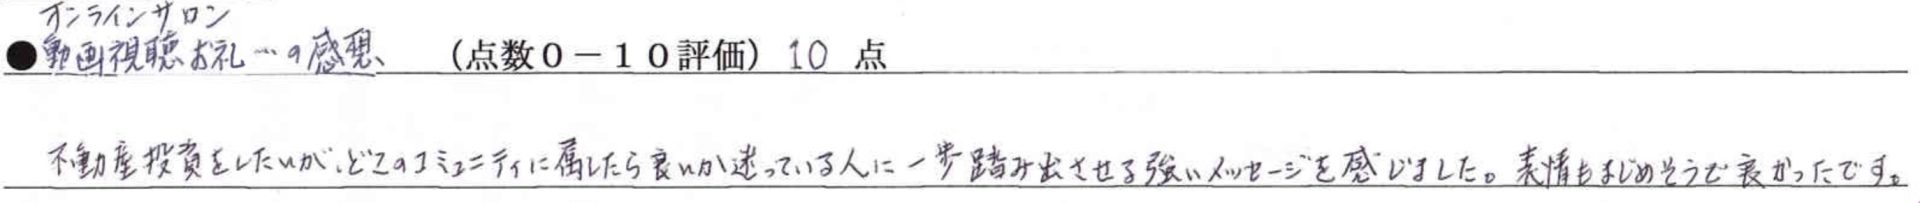 オンラインサロン
●動画視聴お礼…の感想、 (点数0－10評価) 10 点
不動産投資をしたいが、どこのコミュニティに属したら良いか迷っている人に一歩踏み出させる強いメッセージを感じました。表情もまじめそうで良かったです。